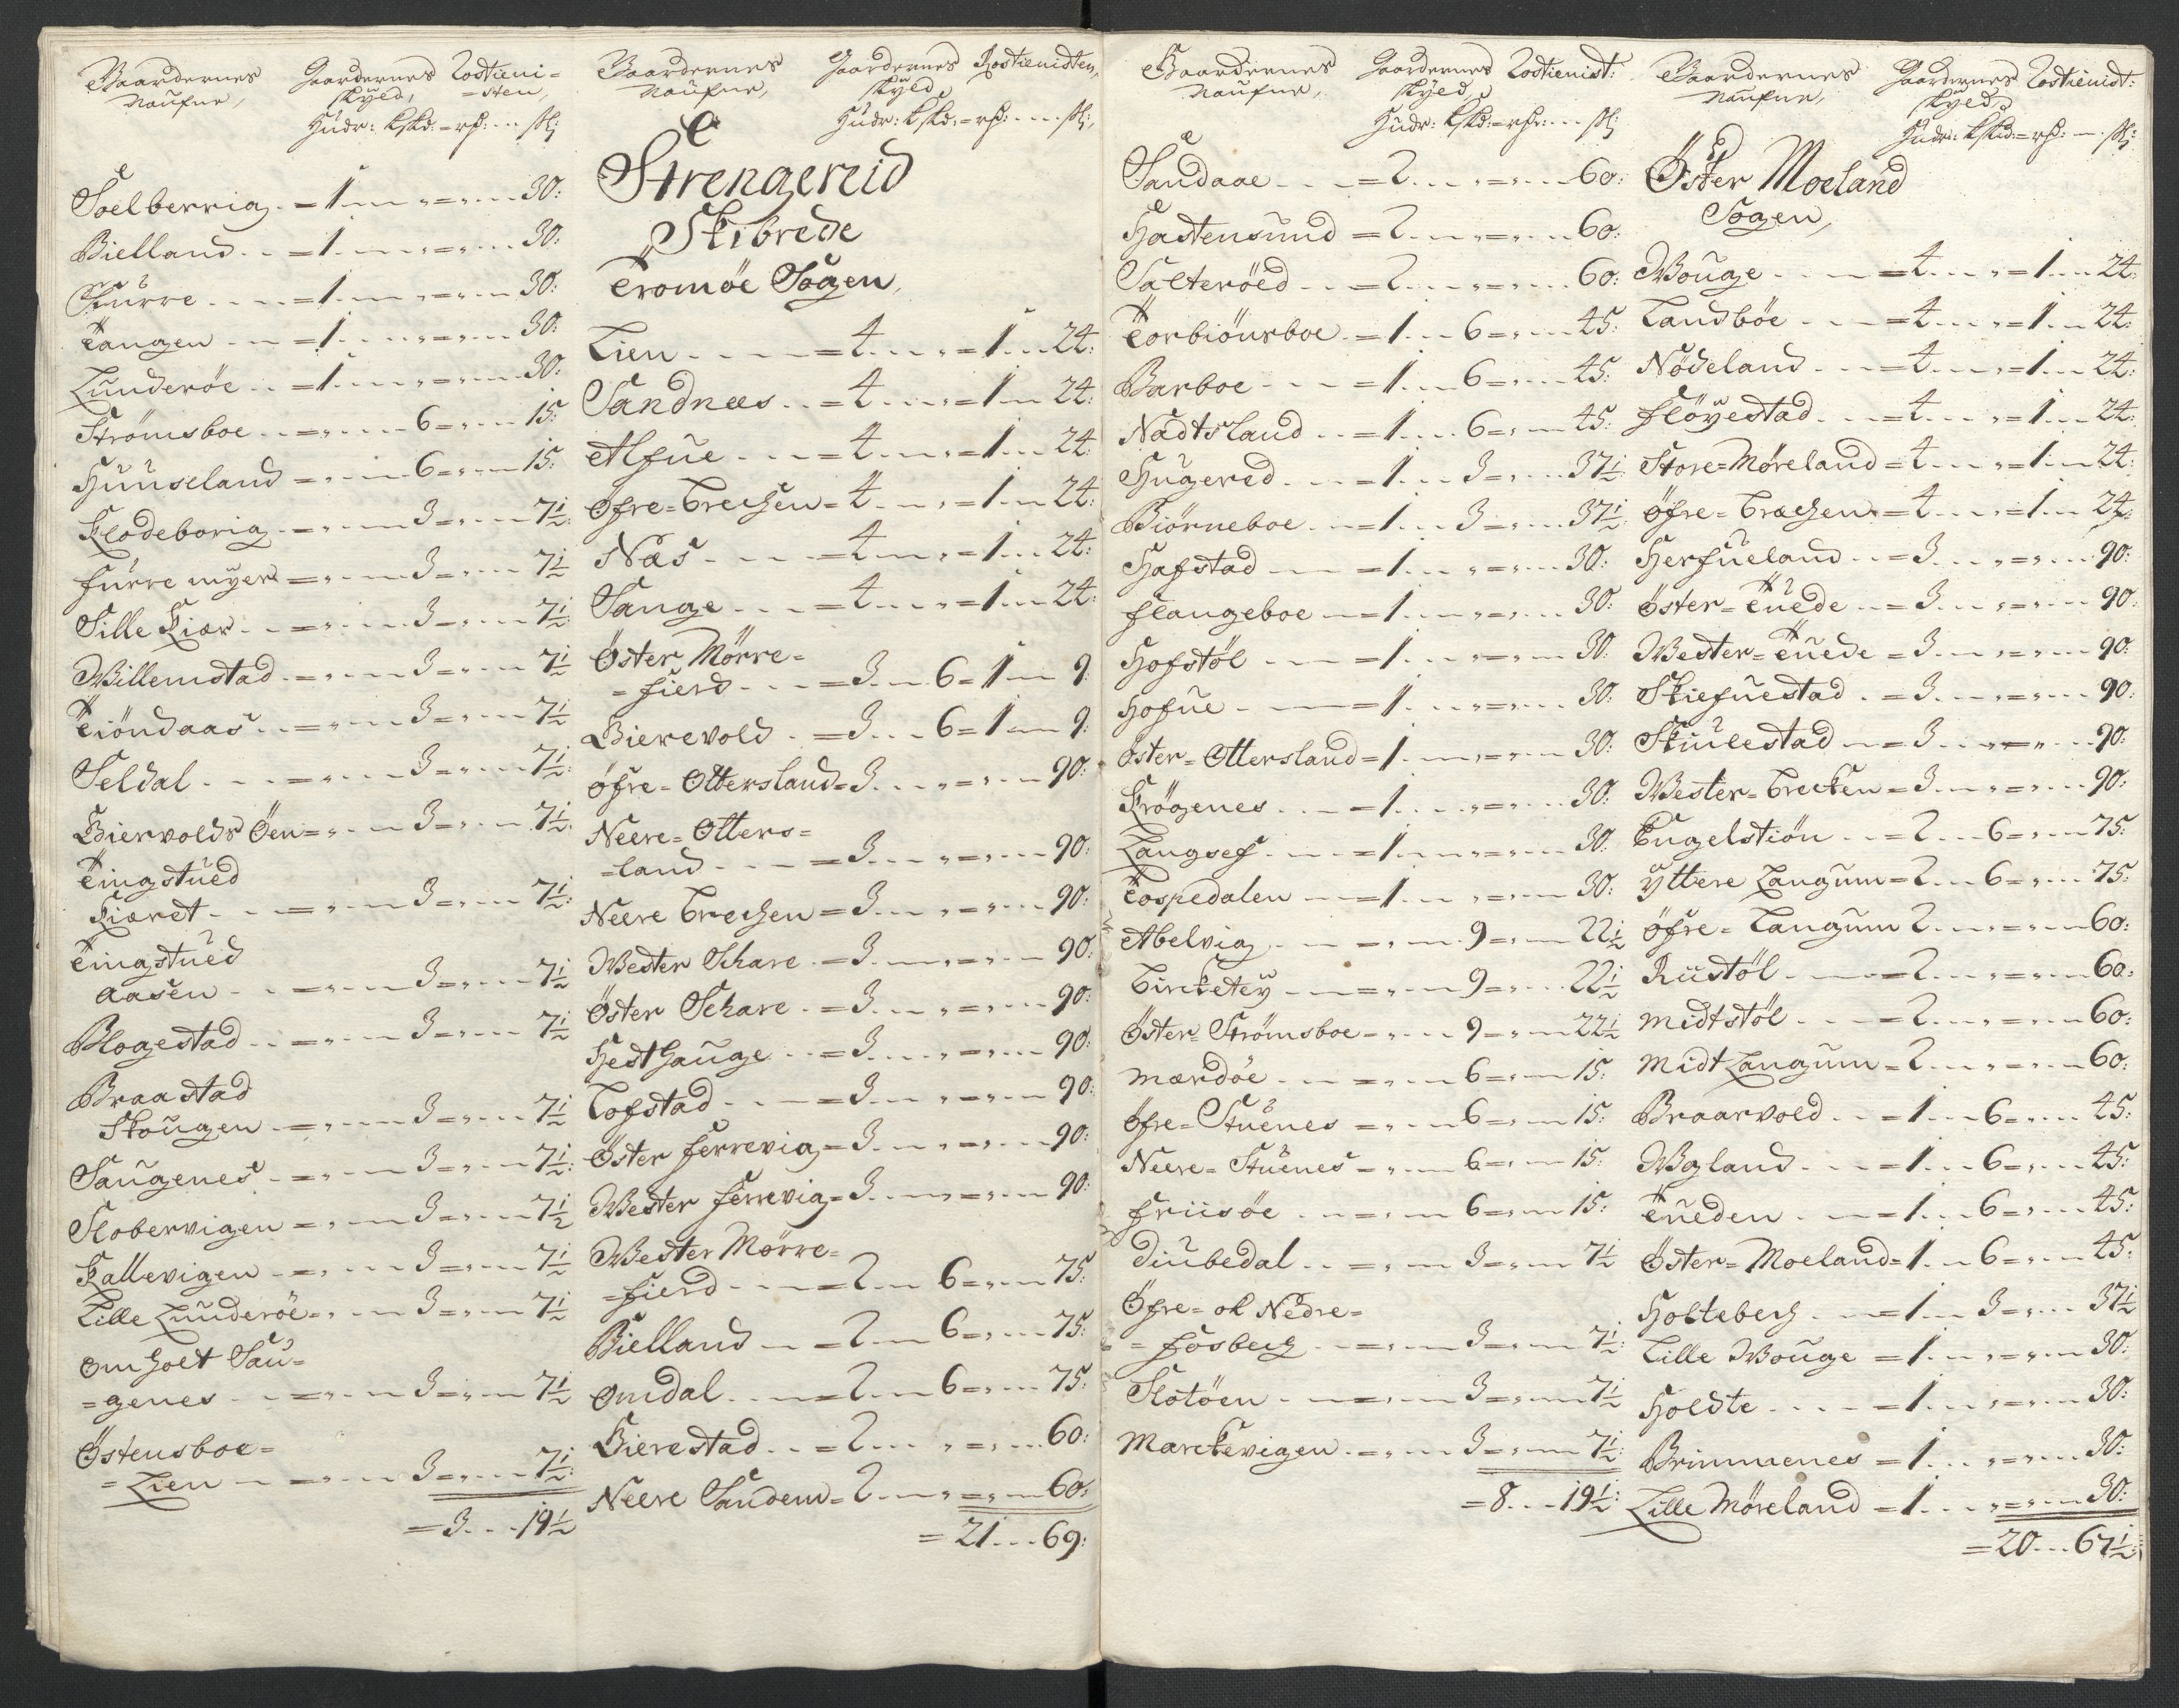 Gaardernes Naufne, Gaardernes Skyld, Rostieni=sten,
Hudr: kskd: = rdr: ... sk:
Soelberrig . = 1 ... " = " ... 30:
Bielland . . = 1 ... " = " ... 30:
Furre . . . = 1 ... " = " ... 30:
Tangen . . = 1 ... " = " ... 30:
Lunderöe . . = 1 ... " = " ... 30:
Strömsboe . . = " ... 6 = " ... 15:
Huuseland = " ... 6 = " ... 15:
Flodeborig . = " ... 3 = " ... 7½:
furre myer = " ... 3 = " ... 7½
Sille Kier . . = " ... 3 = " ... 7½:
Willemstad . = " ... 3 = " ... 7½
Tiöndaas . . = " ... 3 = " ... 7½
Seldal . . . = " ... 3 = " ... 7½:
Biervolds Öen = " ... 3 = " ... 7½:
Tingstued
Kieret . . = " ... 3 = " ... 7½:
Tingstued
Aasen . . = " ... 3 = " ... 7½
Blogestad . . = " ... 3 = " ... 7½
Braastad
Skougen . = " ... 3 = " ... 7½
Saugenes . = " ... 3 = " ... 7½:
Slobervigen = " ... 3 = " ... 7½
Kallevigen . = " ... 3 = " ... 7½
Lille Lunderöe = " ... 3 = " ... 7½
Omholt Sau=
=genes . . = " ... 3 = " ... 7½
Östensboe=
=Lien . = " ... 3 = " ... 7½:
= 3 ... 19½
Gaardernes Naufne, Gaardernes Skyld, Rostienisten,
Hudr: kskd: = rdr: ... sk:
Strengereid
Skibrede
Tromöe Sogen,
Lien . . . = 4 ... " = 1 ... 24:
Sandnes . . = 4 ... " = 1 ... 24:
Alfue . . . = 4 ... " = 1 ... 24
Öfre=Brechen = 4 ... " = 1 ... 24:
Næs . . . = 4 ... " = 1 ... 24:
Sange . . . = 4 ... " = 1 ... 24:
Öster Mörre=
=fierd . . = 3 ... 6 = 1 ... 9:
Bierevold . = 3 ... 6 = 1 ... 9:
Öfre=Ottersland = 3 ... " = " ... 90:
Neere=Otters=
=land . . . = 3 ... " = " ... 90:
Neere Brechen = 3 ... " = " ... 90:
Wester Schare . = 3 ... " = " ... 90:
Öster Schare . = 3 ... " = " ... 90:
Hesthauge . . = 3 ... " = " ... 90:
Tofstad . . . = 3 ... " = " ... 90:
Öster ferrevig = 3 ... " = " ... 90:
Wester ferrevig = 3 ... " = " ... 90:
Wester Mörre=
=fierd . . . = 2 ... 6 = " ... 75:
Bielland . . = 2 ... 6 = " ... 75:
Omdal . . . = 2 ... 6 = " ... 75:
Bierestad . . = 2 ... " = " ... 60:
Neere Sandem = 2 ... " = " ... 60:
= 21 ... 69:
Gaardernes Naufne, Gaardernes Skyld, Rostienist:
Hudr: kskd: = rdr: ... sk:
Sandaae . . . = 2 ... " = " ... 60:
Hastensund = 2 ... " = " ... 60:
Salteröed . . = 2 ... " = " ... 60:
Torbiönsboe . = 1 ... 6 = " ... 45:
Barboe . . . = 1 ... 6 = " ... 45:
Nadtsland . . = 1 ... 6 = " ... 45:
Hugered . . . = 1 ... 3 = " ... 37½
Biörneboe . . = 1 ... 3 = " ... 37½:
Hafstad . . = 1 ... " = " ... 30:
flangeboe . = 1 ... " = " ... 30:
Hofstöl . . . = 1 ... " = " ... 30:
Hofue . . . = 1 ... " = " ... 30:
Öster=Ottersland = 1 ... " = " ... 30:
Krögenes . . . = 1 ... " = " ... 30:
Langsef . . . = 1 ... " = " ... 30:
Tospedalen . = 1 ... " = " ... 30:
Abelvig . . . = " ... 9 = " ... 22½
Bircketey . . = " ... 9 = " ... 22½
Öster=Strömsboe = " ... 9 = " ... 22½
Mærdöe . . = " ... 6 = " ... 15:
Öfre=Stuenes = " ... 6 = " ... 15:
Neere=Stuenes = " ... 6 = " ... 15:
friisöe . . . = " ... 6 = " ... 15:
Diubedal . . = " ... 3 = " ... 7½
Öfre= ok Nedre=
=fosberg . . = " ... 3 = " ... 7½:
Slotöen . . . = " ... 3 = " ... 7½
Marckevigen . = " ... 3 = " ... 7½:
= 8 ... 19½:
Gaardernes Naufne, Gaardernes Skyld, Rostienist:
Hudr: kskd: = rdr: ... sk:
Öster Moeland
Sogen,
Wouge . . . = 4 ... " = 1 ... 24:
Landböe . . = 4 ... " = 1 ... 24:
Nödeland . . = 4 ... " = 1 ... 24:
flöyestad . . = 4 ... " = 1 ... 24:
Store=Möreland = 4 ... " = 1 ... 24:
Öfre=Bræchen = 4 ... " = 1 ... 24:
Herfueland . . = 3 ... " = " ... 90:
Öster=Tuede . . = 3 ... " = " ... 90:
Wester=Tuede = 3 ... " = " ... 90:
Skiefuestad . = 3 ... " = " ... 90:
Skiulestad . . = 3 ... " = " ... 90:
Wester=Brecken = 3 ... " = " ... 90:
Engelstiön . . = 2 ... 6 = " ... 75:
Yttere Langum = 2 ... 6 = " ... 75:
Öfre=Langum 2 ... " = " ... 60:
Riistöl . . . = 2 ... " = " ... 60:
Midtstöl . . = 2 ... " = " ... 60:
Midt Langum = 2 ... " = " ... 60:
Braarvold . . = 1 ... 6 = " ... 45:
Wgland . . . = 1 ... 6 = " ... 45:
Tueden . . . = 1 ... 6 = " ... 45:
Öster=Moeland = 1 ... 6 = " ... 45:
Holteberg . . = 1 ... 3 = " ... 37½
Lille Wouge = 1 ... " = " ... 30:
Holdte . . . = 1 ... " = " ... 30:
Brimmenes = 1 ... " = " ... 30:
Lille Möreland = 1 ... " = " ... 30:
= 20 ... 67½: